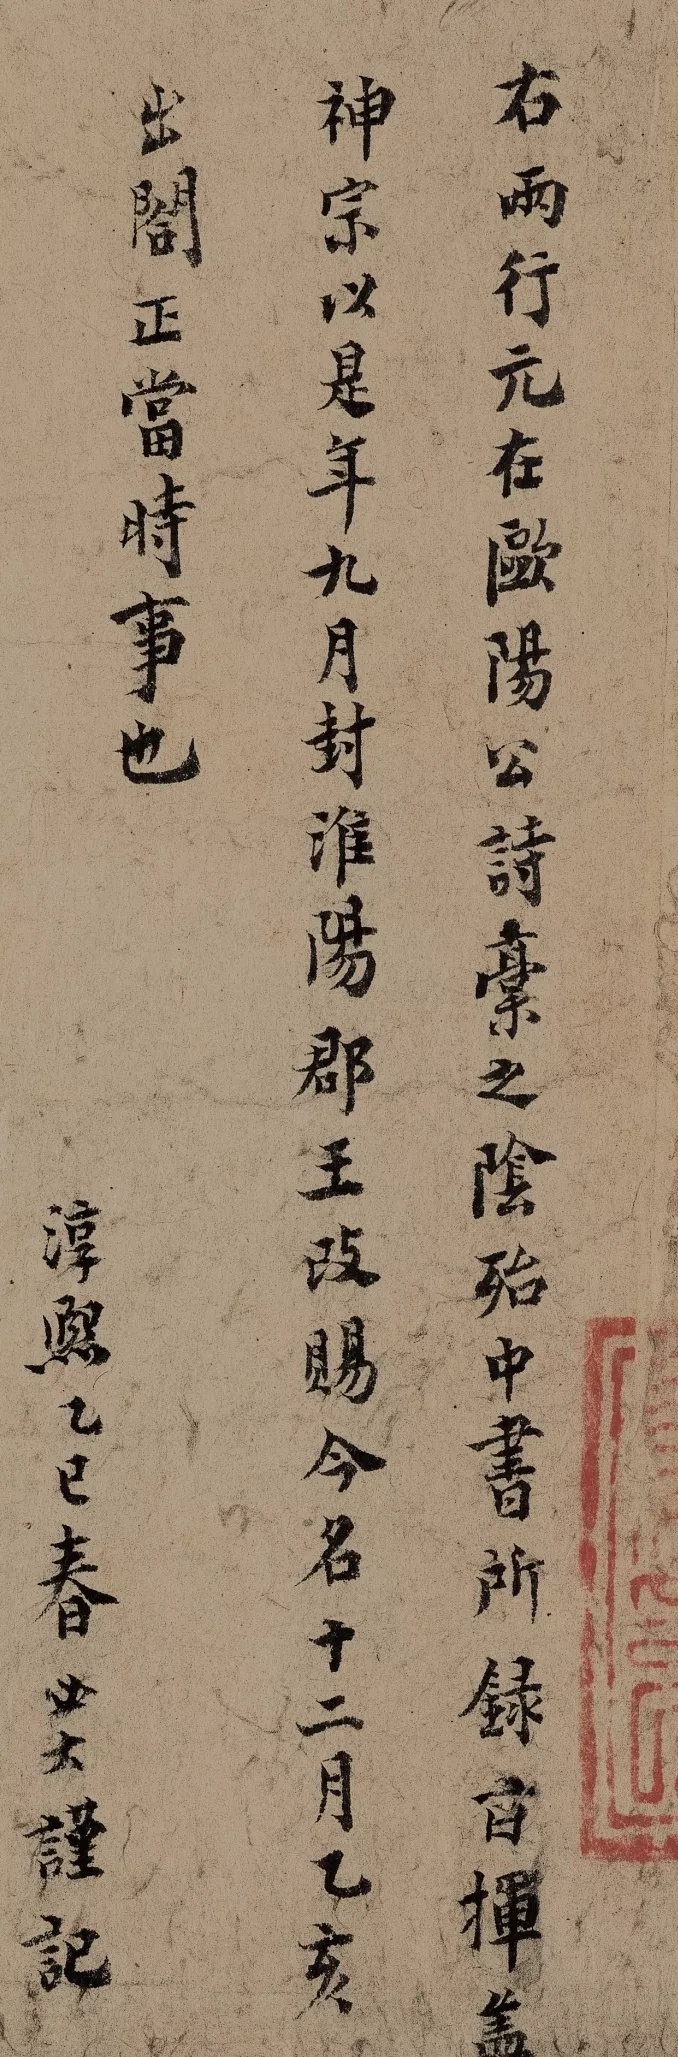 右兩行元在歐陽公詩稾之陰殆中書所録旨揮蓋
神宗以是年九月封淮陽郡王改賜今名十二月乙亥
出閤正當時事也
淳熙乙巳春必大謹記